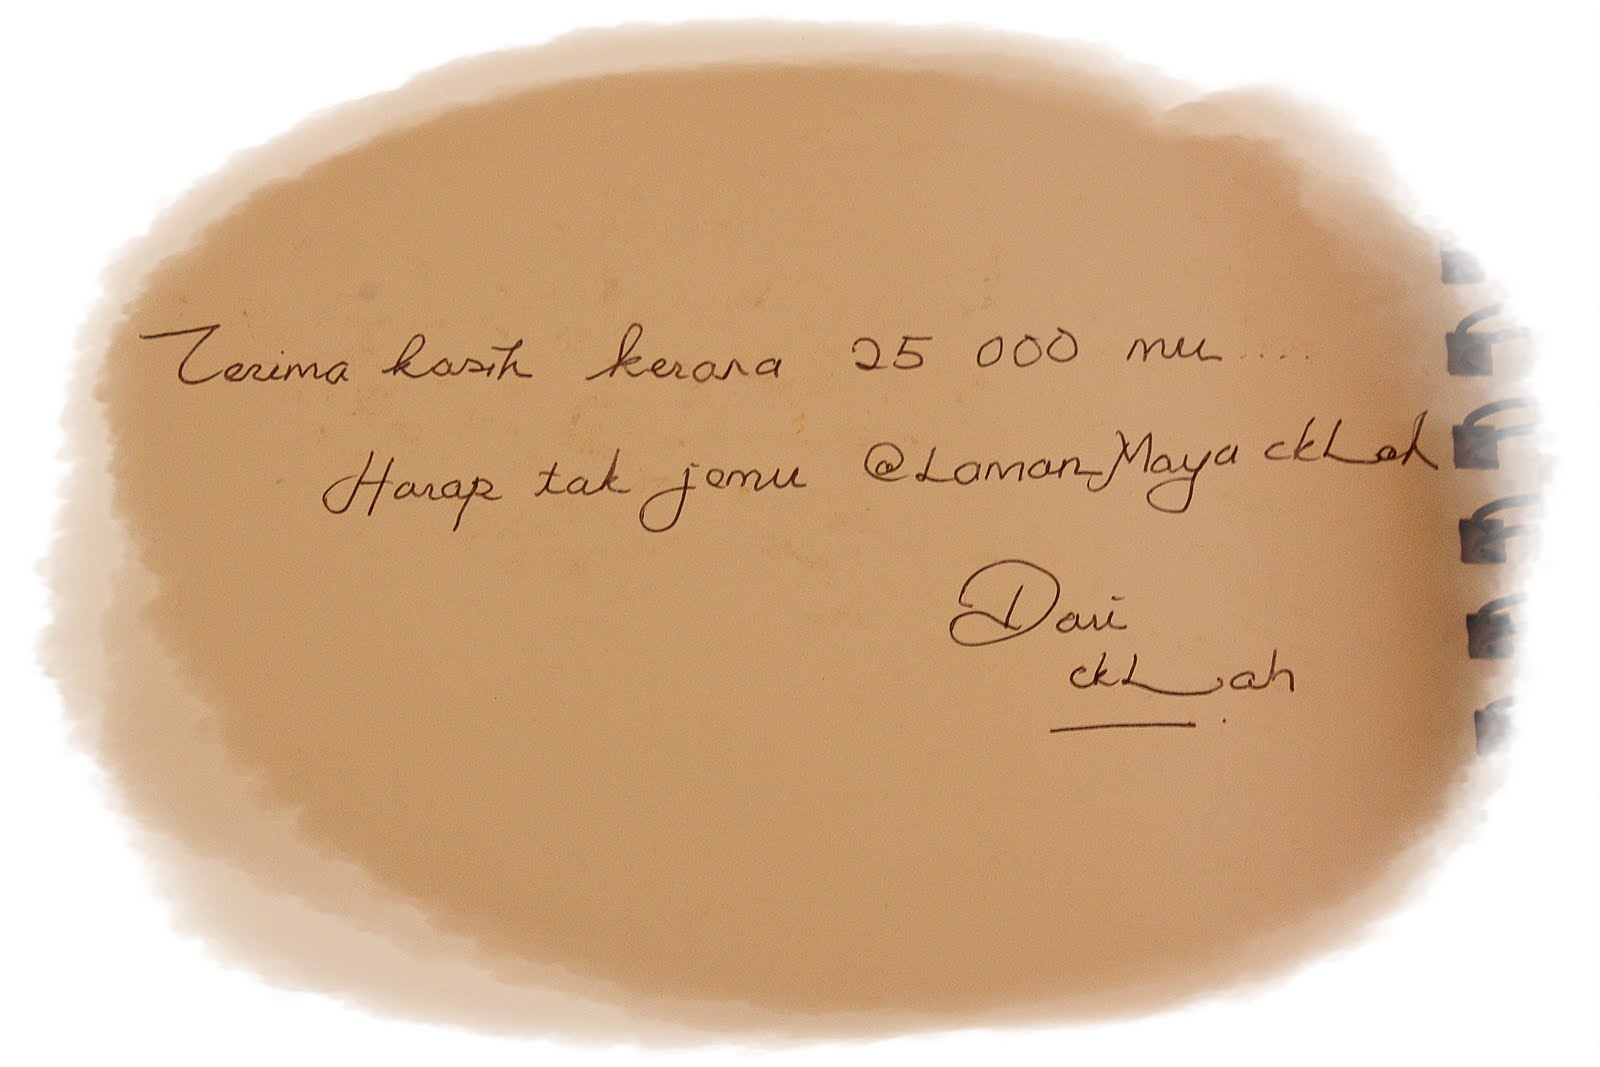 Terima kasih kerana 25 000 mu....
Harap tak jemu @Laman Maya ckLah
Dari
ckLah